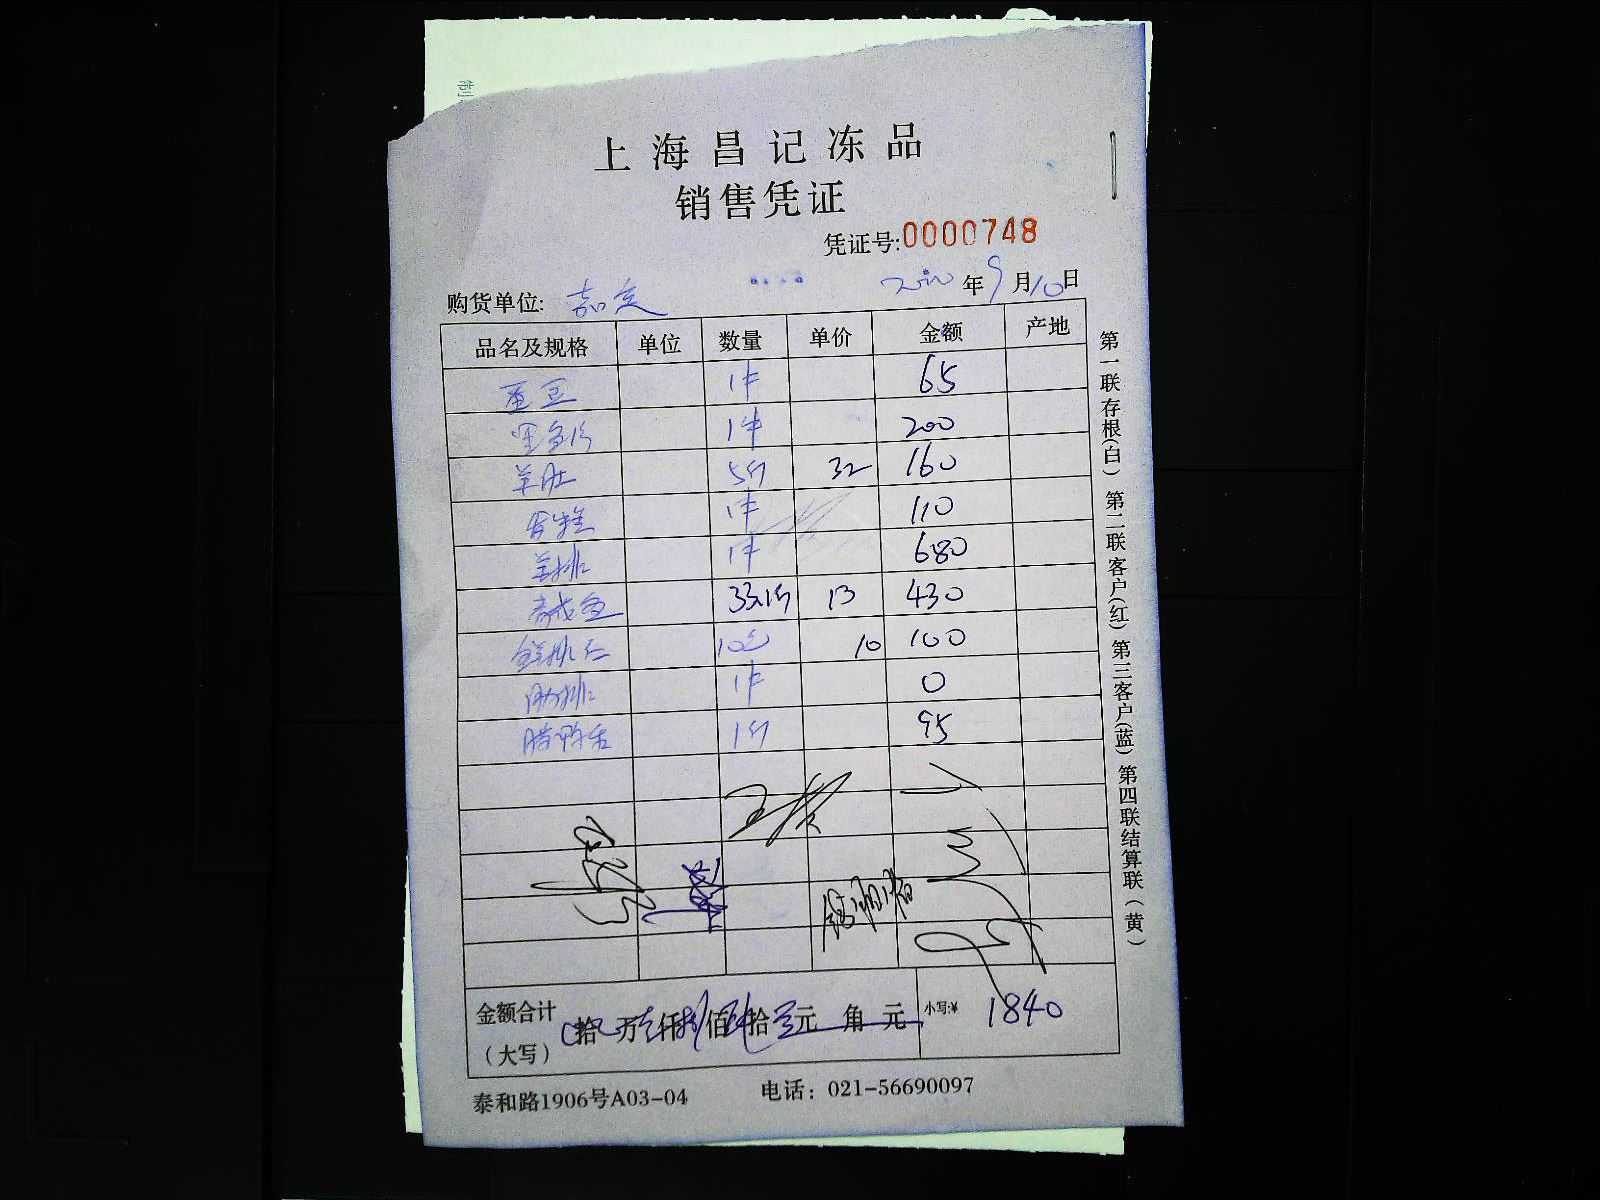 上海昌记冻品
销售凭证
凭证号:0000748
年9月10日
购货单位: 嘉定
品名及规格 单位 数量 单价 金额 产地
蚕豆 1件 65
1件 200
羊肚 5斤 32 160
1件 110
羊排 1件 680
33.1斤 13 430
10包 10 100
肋排 1件 0
腊鸭舌 1斤 95
金额合计
（大写）
拾 万 仟 佰 拾 元 角 元
小写:¥ 1840
泰和路1906号A03-04 电话：021-56690097
第一联存根(白) 第二联客户(红) 第三客户(蓝) 第四联结算联(黄)